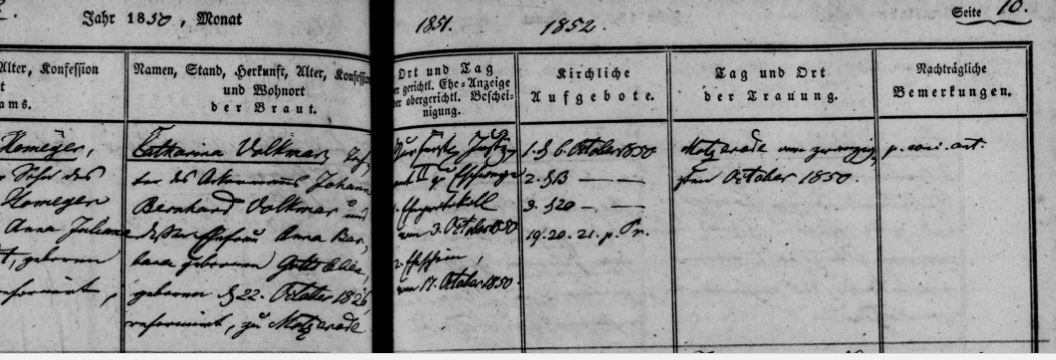 Jahr 1850, Monat
1851. 1852.
Seite 10.
Alter, Konfession
Namen, Stand, Herkunft, Alter, Konfession
und Wohnort
der Braut.
Ort und Tag
der gerichtl. Ehe-Anzeige
der obergerichtl. Beschei-
nigung.
Kirchliche
Aufgebote.
Tag und Ort
der Trauung.
Nachträgliche
Bemerkungen.
Homeyer,
Sohn des
Homeyer
Anna Juliana
geboren
reformirt,
Catharina Volkmar, Toch-
ter des Ackermanns Johann
Bernhard Volkmar und
dessen Ehefrau Anna Bar-
bara geborenen
geboren d 22. October 1826,
reformirt, zu Motzerode
Kurfürstl. Justiz-
amt II zu Eschwege
Eheprotokoll
vom 3. October 1850
2. Ehschein,
vom 17. October 1850.
1. d 6. October 1850
2. d 13 — —
3. d 20 — —
19. 20. 21. p. Tr.
Motzerode am zwanzig-
sten October 1850.